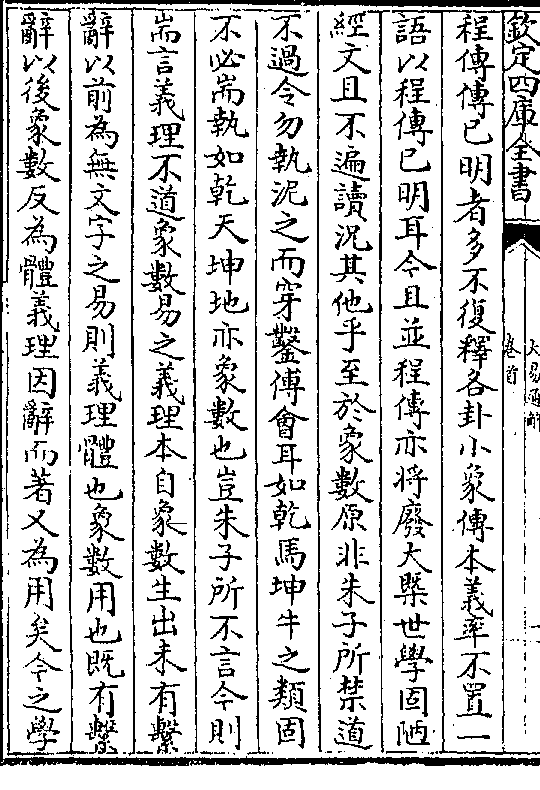 欽定四庫全書
大易通解
卷首
程傳傳已明者多不復釋各卦小象傳本義率不置一
語以程傳已明耳今且並程傳亦將廢大槩世學固陋
經文且不遍讀況其他乎至於象數原非朱子所禁道
不過令勿執泥之而穿鑿傅會耳如乾馬坤牛之類固
不必耑執如乾天坤地亦象數也豈朱子所不言今則
耑言義理不道象數易之義理本自象數生出未有繫
辭以前為無文字之易則義理體也象數用也既有繫
辭以後象數反為體義理因辭而著又為用矣今之學